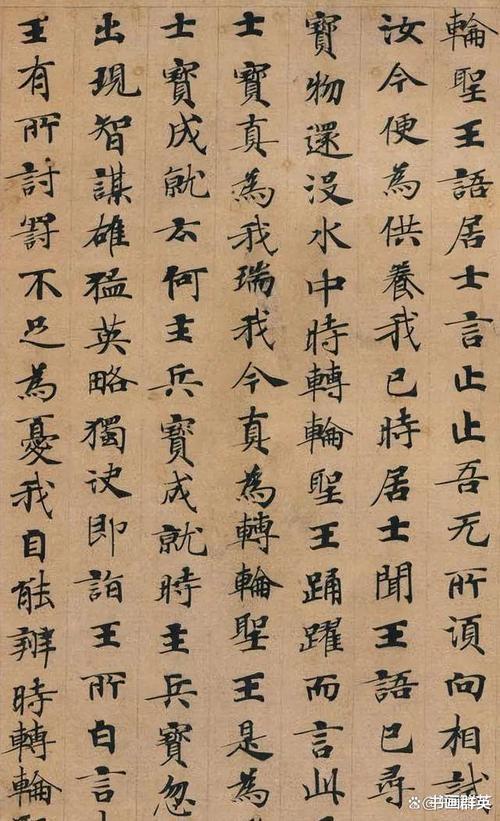 輪聖王語居士言止止吾无所湏向相試
汝今便為供養我已時居士聞王語已尋
寶物還没水中時轉輪聖王踊躍而言此
士寶真為我瑞我今真為轉輪聖王是為
士寶成就云何主兵寶成就時主兵寶忽
出現智謀雄猛英略獨决即詣王所白言
王有所討罸不足為憂我自能辦時轉輪
書画群英